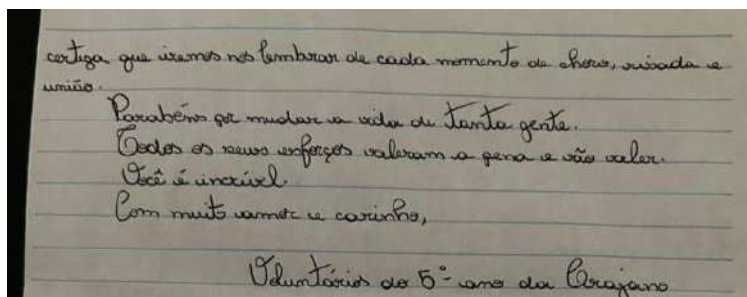 certeza que iremos nos lembrar de cada momento de choro, risada e
união.
Parabéns por mudar a vida de tanta gente.
Todos os seus esforços valeram a pena e vão valer.
Você é incrível.
Com muito amor e carinho,
Voluntários do 5º ano da